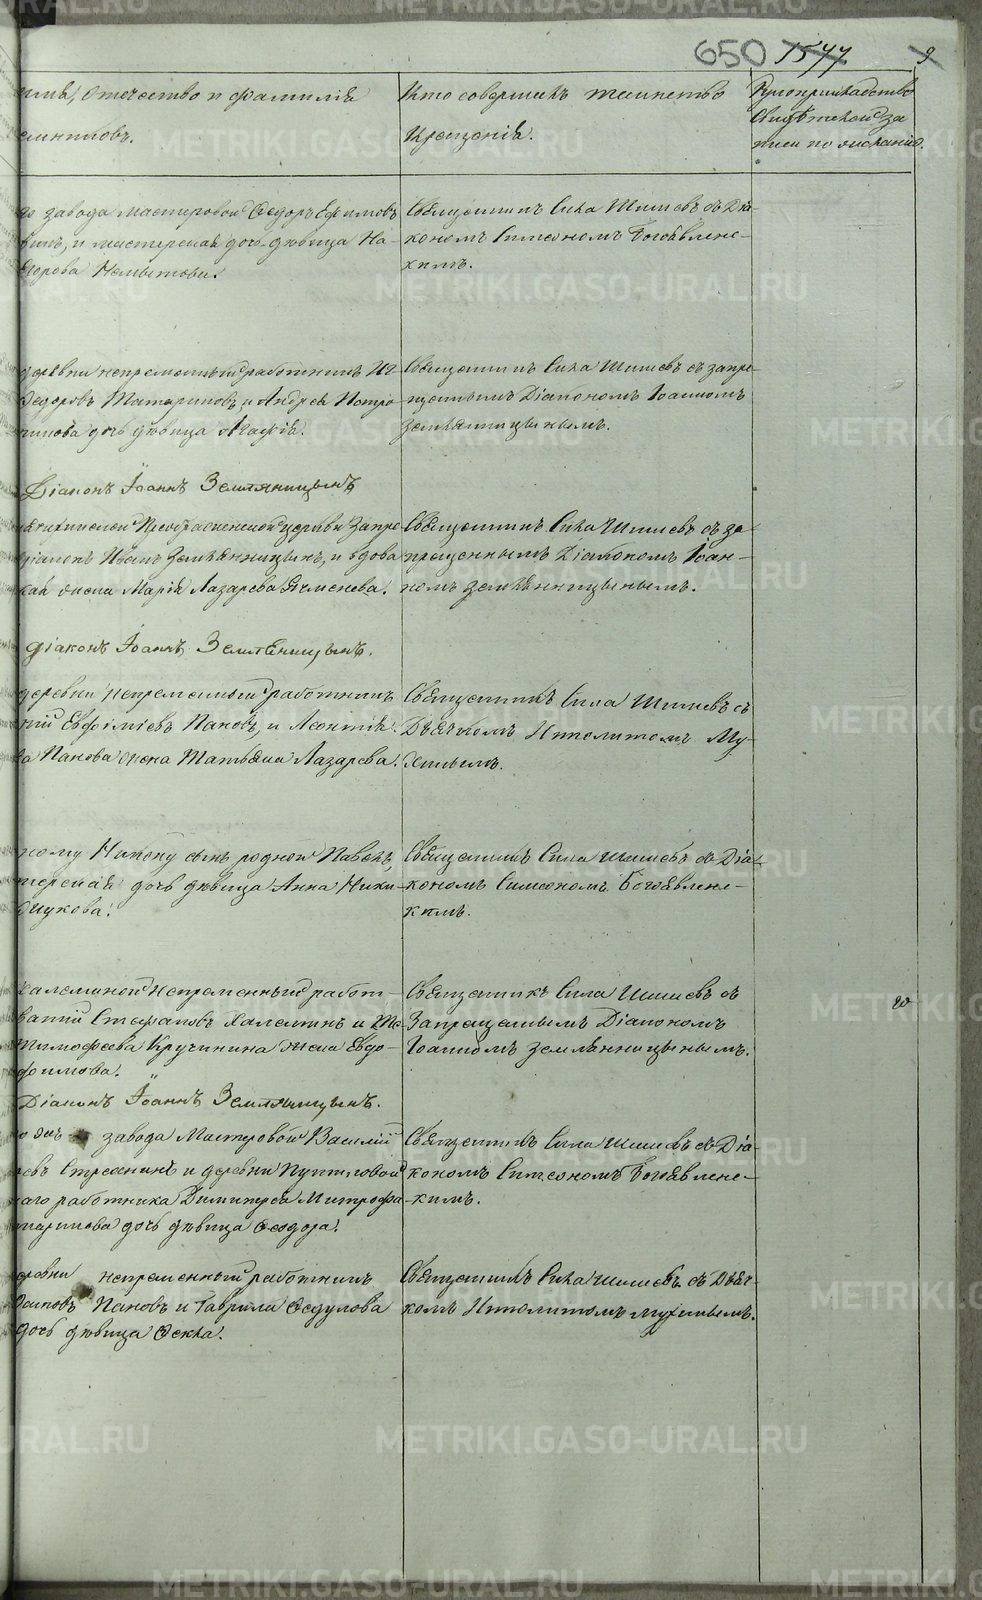 650 1577 9
имя, отчество и фамилія
Кто совершилъ таинство
Рукоприкладство
Крещенія.
свидѣтелей за-
писи по желанію.
завода мастеровой Ѳедоръ Ефимовъ
и мастерская дочь дѣвица На-
Егорова
Священникъ Сила Шишевъ съ Діа-
кономъ Симеономъ Богоявленс-
кимъ.
деревни непременный работникъ
Ѳедоровъ Татариновъ и Андрея Петро-
дочь дѣвица Агафія.
Священникъ Сила Шишевъ съ запре-
щеннымъ Діакономъ Іоанномъ
Земляницынымъ.
Діаконъ Іоаннъ Земляницынъ
Преображенской церкви Запре-
діаконъ Иванъ Земляницынъ, и вдова
жена Марія Лазарева
Священникъ Сила Шишевъ съ за-
прещеннымъ Діакономъ Іоан-
номъ Земляницынымъ.
Діаконъ Іоаннъ Земляницынъ.
деревни непременный работникъ
Евфиміевъ Пановъ, и Леонтія
Панова жена Татьяна Лазарева.
Священникъ Сила Шишевъ съ
Дьячкомъ Ипполитомъ Му-
хинымъ.
Никону сынъ родной Павелъ,
дочь дѣвица Анна Ники-
Жукова.
Священникъ Сила Шишевъ съ Діа-
кономъ Симеономъ Богоявленс-
кимъ.
непременный работ-
Стефановъ Халемінъ и
Тимофеева Кручинина жена Евдо-
фимова.
Священникъ Сила Шишевъ съ
Запрещеннымъ Діакономъ
Іоанномъ Земляницынымъ.
Діаконъ Іоаннъ Земляницынъ.
завода Мастеровой Василій
и деревни
работника Димитрея Митрофа-
дочь дѣвица Ѳеодора.
Священникъ Сила Шишевъ съ Діа-
кономъ Симеономъ Богоявленс-
кимъ.
непременный работникъ
Осиповъ Пановъ и Гаврила Ѳедулова
дочь дѣвица Ѳекла.
Священникъ Сила Шишевъ съ Дьяч-
комъ Ипполитомъ Мухинымъ.
METRIKI.GASO-URAL.RU